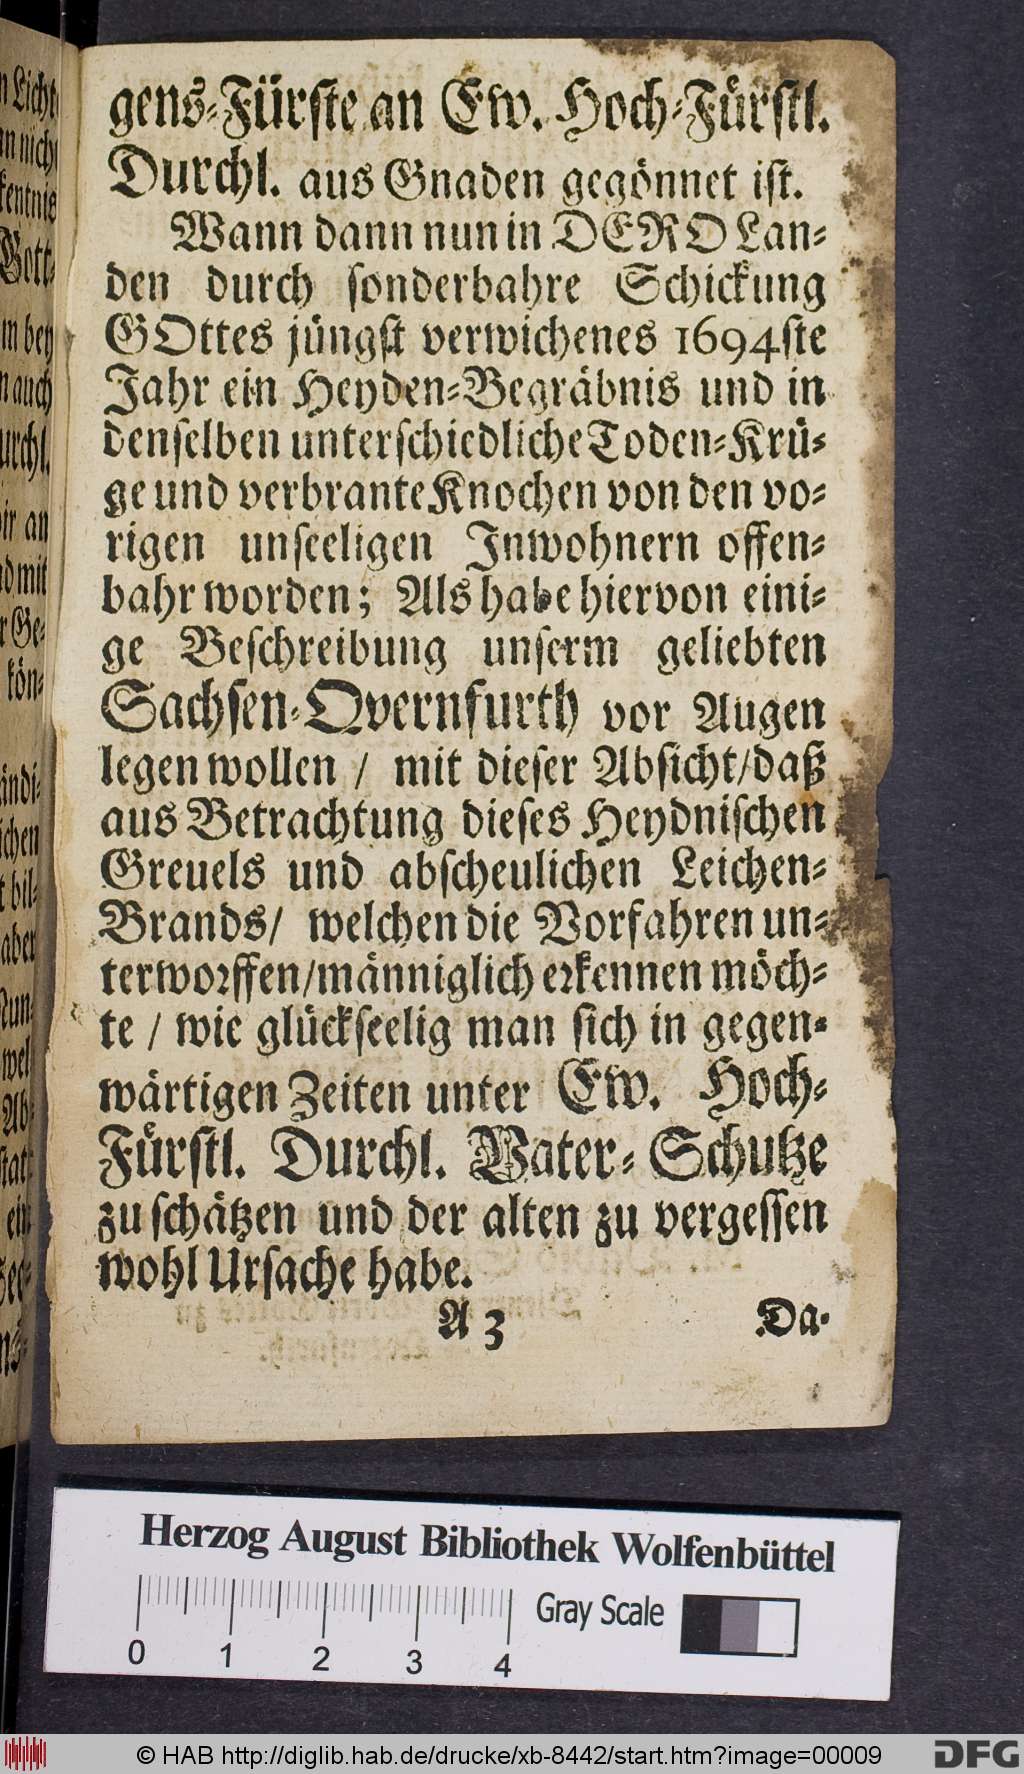 gens-Fürste an Ew. Hoch-Fürstl.
Durchl. aus Gnaden gegönnet ist.
Wann dann nun in DERO Lan-
den durch sonderbahre Schickung
GOttes jüngst verwichenes 1694ste
Jahr ein Heyden-Begräbnis und in
denselben unterschiedliche Toden-Krü-
ge und verbrante Knochen von den vo-
rigen unseeligen Inwohnern offen-
bahr worden; Als habe hiervon eini-
ge Beschreibung unserm geliebten
Sachsen-Qvernfurth vor Augen
legen wollen / mit dieser Absicht/daß
aus Betrachtung dieses Heydnischen
Greuels und abscheulichen Leichen-
Brands/ welchen die Vorfahren un-
terworffen/männiglich erkennen möch-
te / wie glückseelig man sich in gegen-
wärtigen Zeiten unter Ew. Hoch-
Fürstl. Durchl. Vater-Schutze
zu schätzen und der alten zu vergessen
wohl Ursache habe.
A 3 Da-
n Licht
n nich
kentnis
Gott-
m bey
n auch
urchl.
ir an
d mit
r Ge-
kön-
ündi-
ichen
t bil-
aber
wel
Ab-
stat-
ein
Herzog August Bibliothek Wolfenbüttel
Gray Scale
0 1 2 3 4
© HAB http://diglib.hab.de/drucke/xb-8442/start.htm?image=00009
DFG